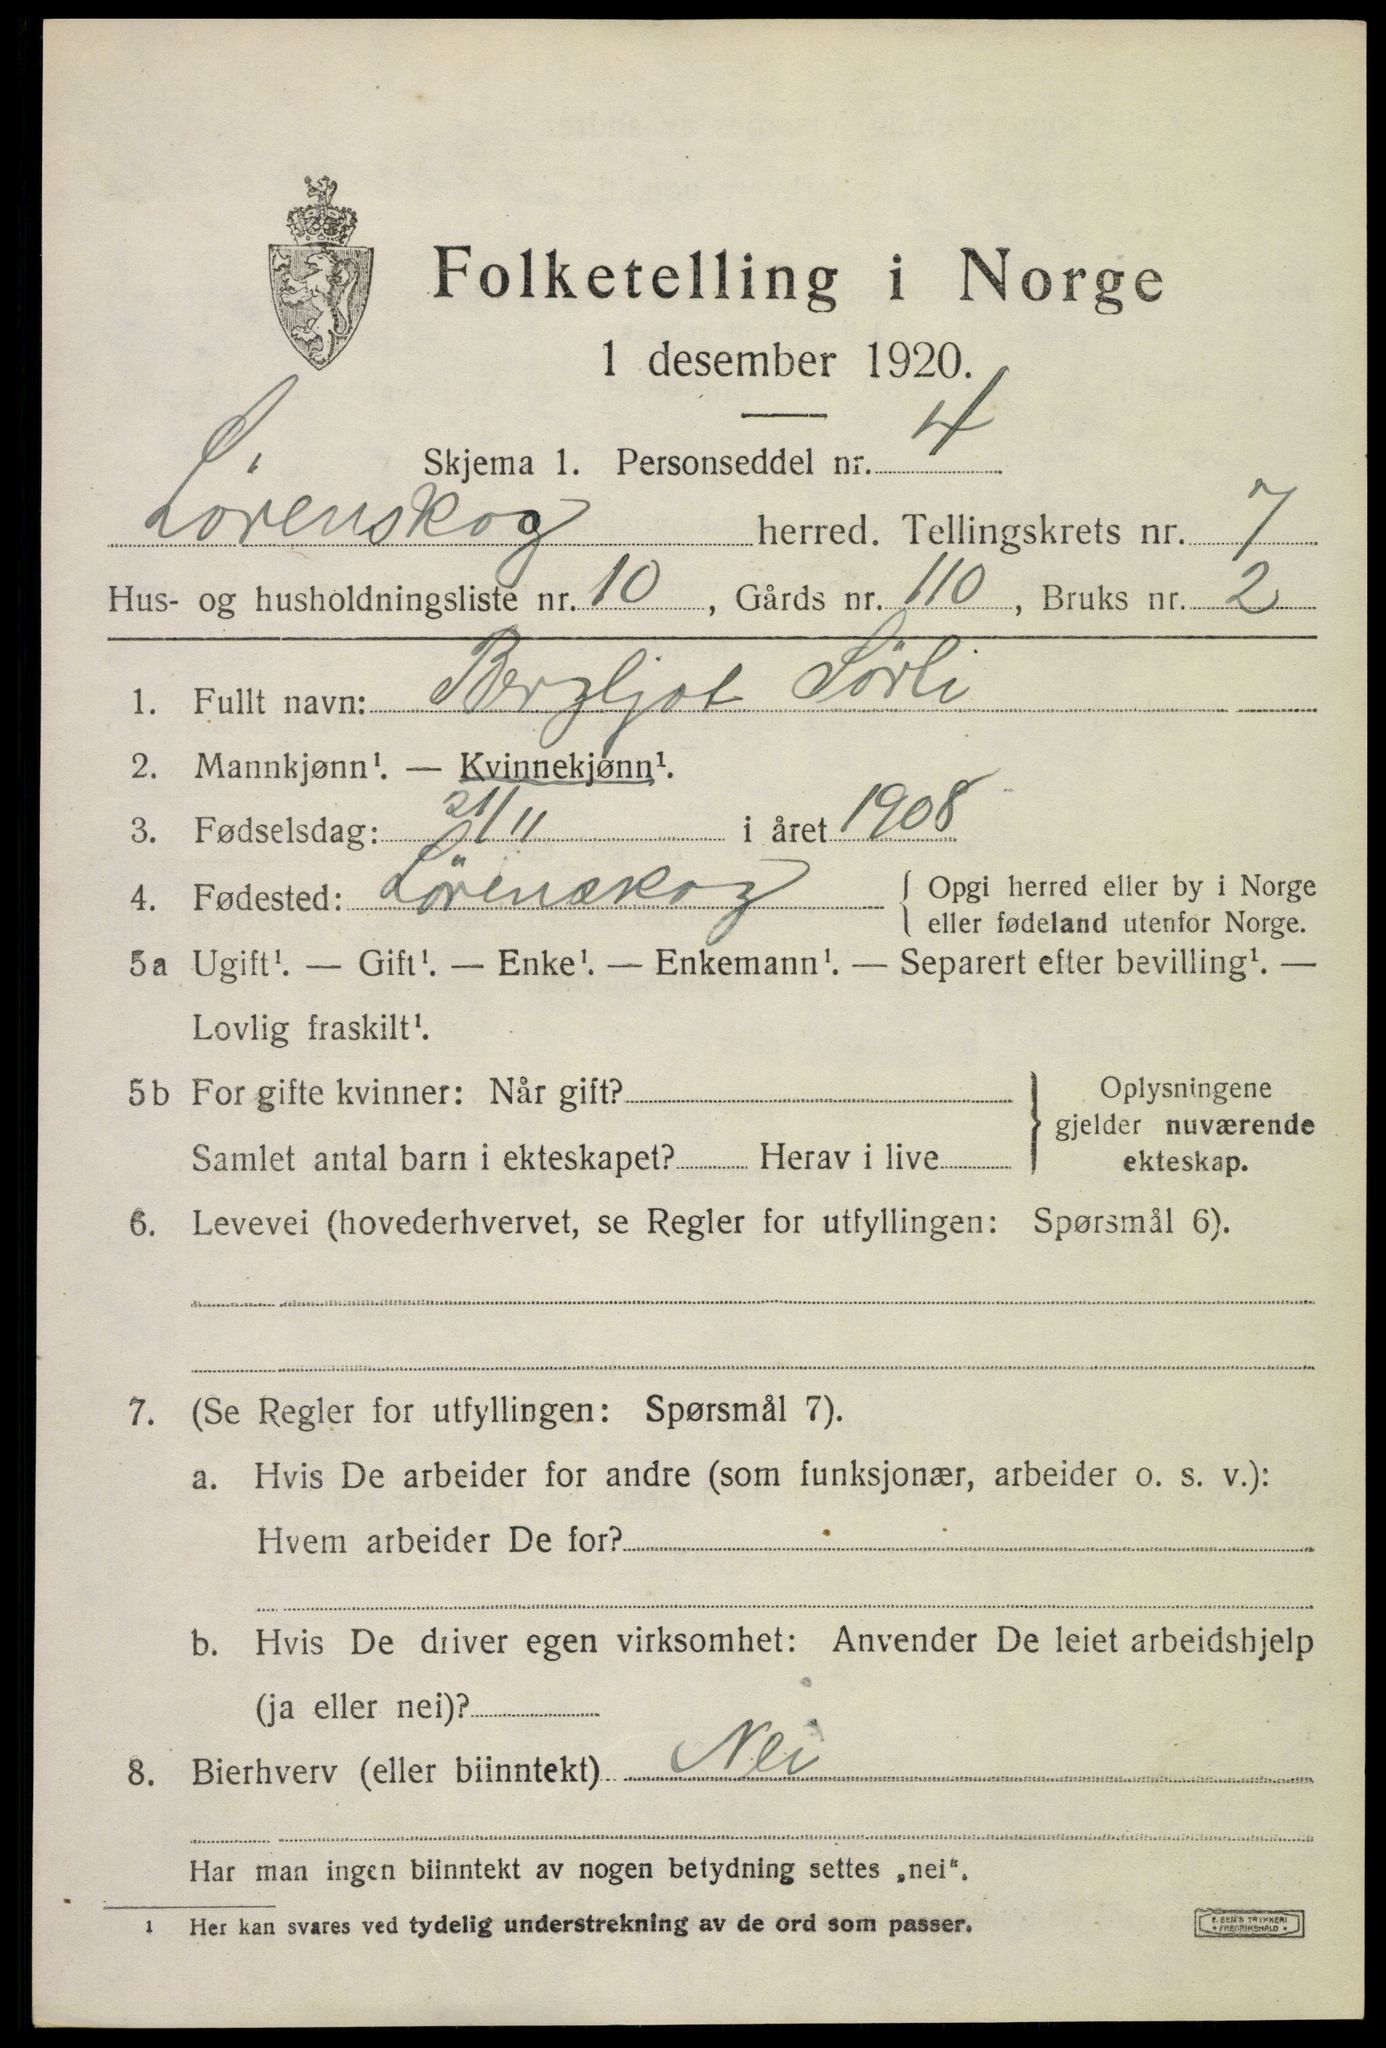 Folketelling i Norge
1 desember 1920.
Skjema 1. Personseddel nr. 4
Lørenskog herred. Tellingskrets nr. 7
Hus- og husholdningsliste nr. 10, Gårds nr. 110, Bruks nr. 2
1. Fullt navn: Bergljot Sörli
2. Mannkjønn¹. — Kvinnekjønn¹.
3. Fødselsdag: 21/11 i året 1908
4. Fødested: Lörenskog { Opgi herred eller by i Norge
eller fødeland utenfor Norge.
5a Ugift¹. — Gift¹. — Enke¹. — Enkemann¹. — Separert efter bevilling¹. —
Lovlig fraskilt¹.
5b For gifte kvinner: Når gift?
Samlet antal barn i ekteskapet? Herav i live
} Oplysningene
gjelder nuværende
ekteskap.
6. Levevei (hovederhvervet, se Regler for utfyllingen: Spørsmål 6).
7. (Se Regler for utfyllingen: Spørsmål 7).
a. Hvis De arbeider for andre (som funksjonær, arbeider o. s. v.):
Hvem arbeider De for?
b. Hvis De driver egen virksomhet: Anvender De leiet arbeidshjelp
(ja eller nei)?
8. Bierhverv (eller biinntekt) Nei
Har man ingen biinntekt av nogen betydning settes „nei“.
1 Her kan svares ved tydelig understrekning av de ord som passer.
E. SEM'S TRYKKERI
• FREDRIKSHALD •